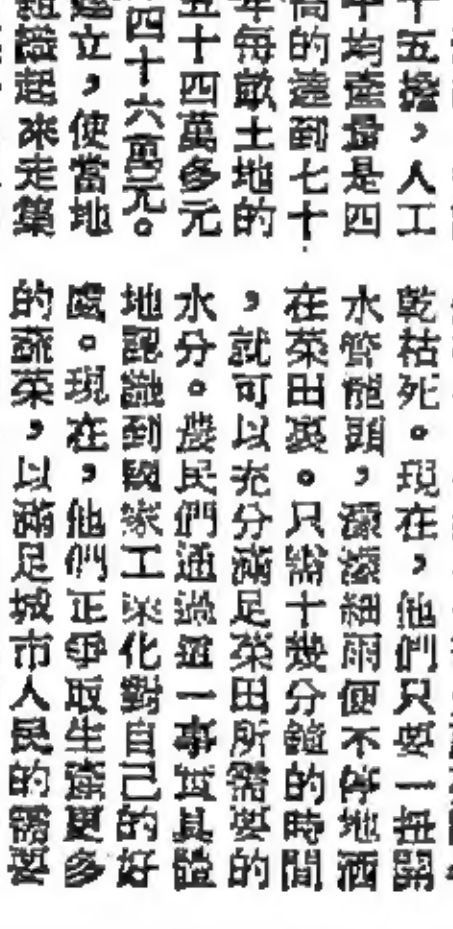 十五擔，人工
平均產量是四
高的達到七十
年每畝土地的
五十四萬多元
四十六萬元。
建立，使當地
組織起來走集
乾枯死。現在，他們只要一扭開
水管龍頭，濛濛細雨便不停地洒
在菜田裏。只需十幾分鐘的時間
，就可以充分滿足菜田所需要的
水分。農民們通過這一事實具體
地認識到國家工業化對自己的好
處。現在，他們正爭取生產更多
的蔬菜，以滿足城市人民的需要